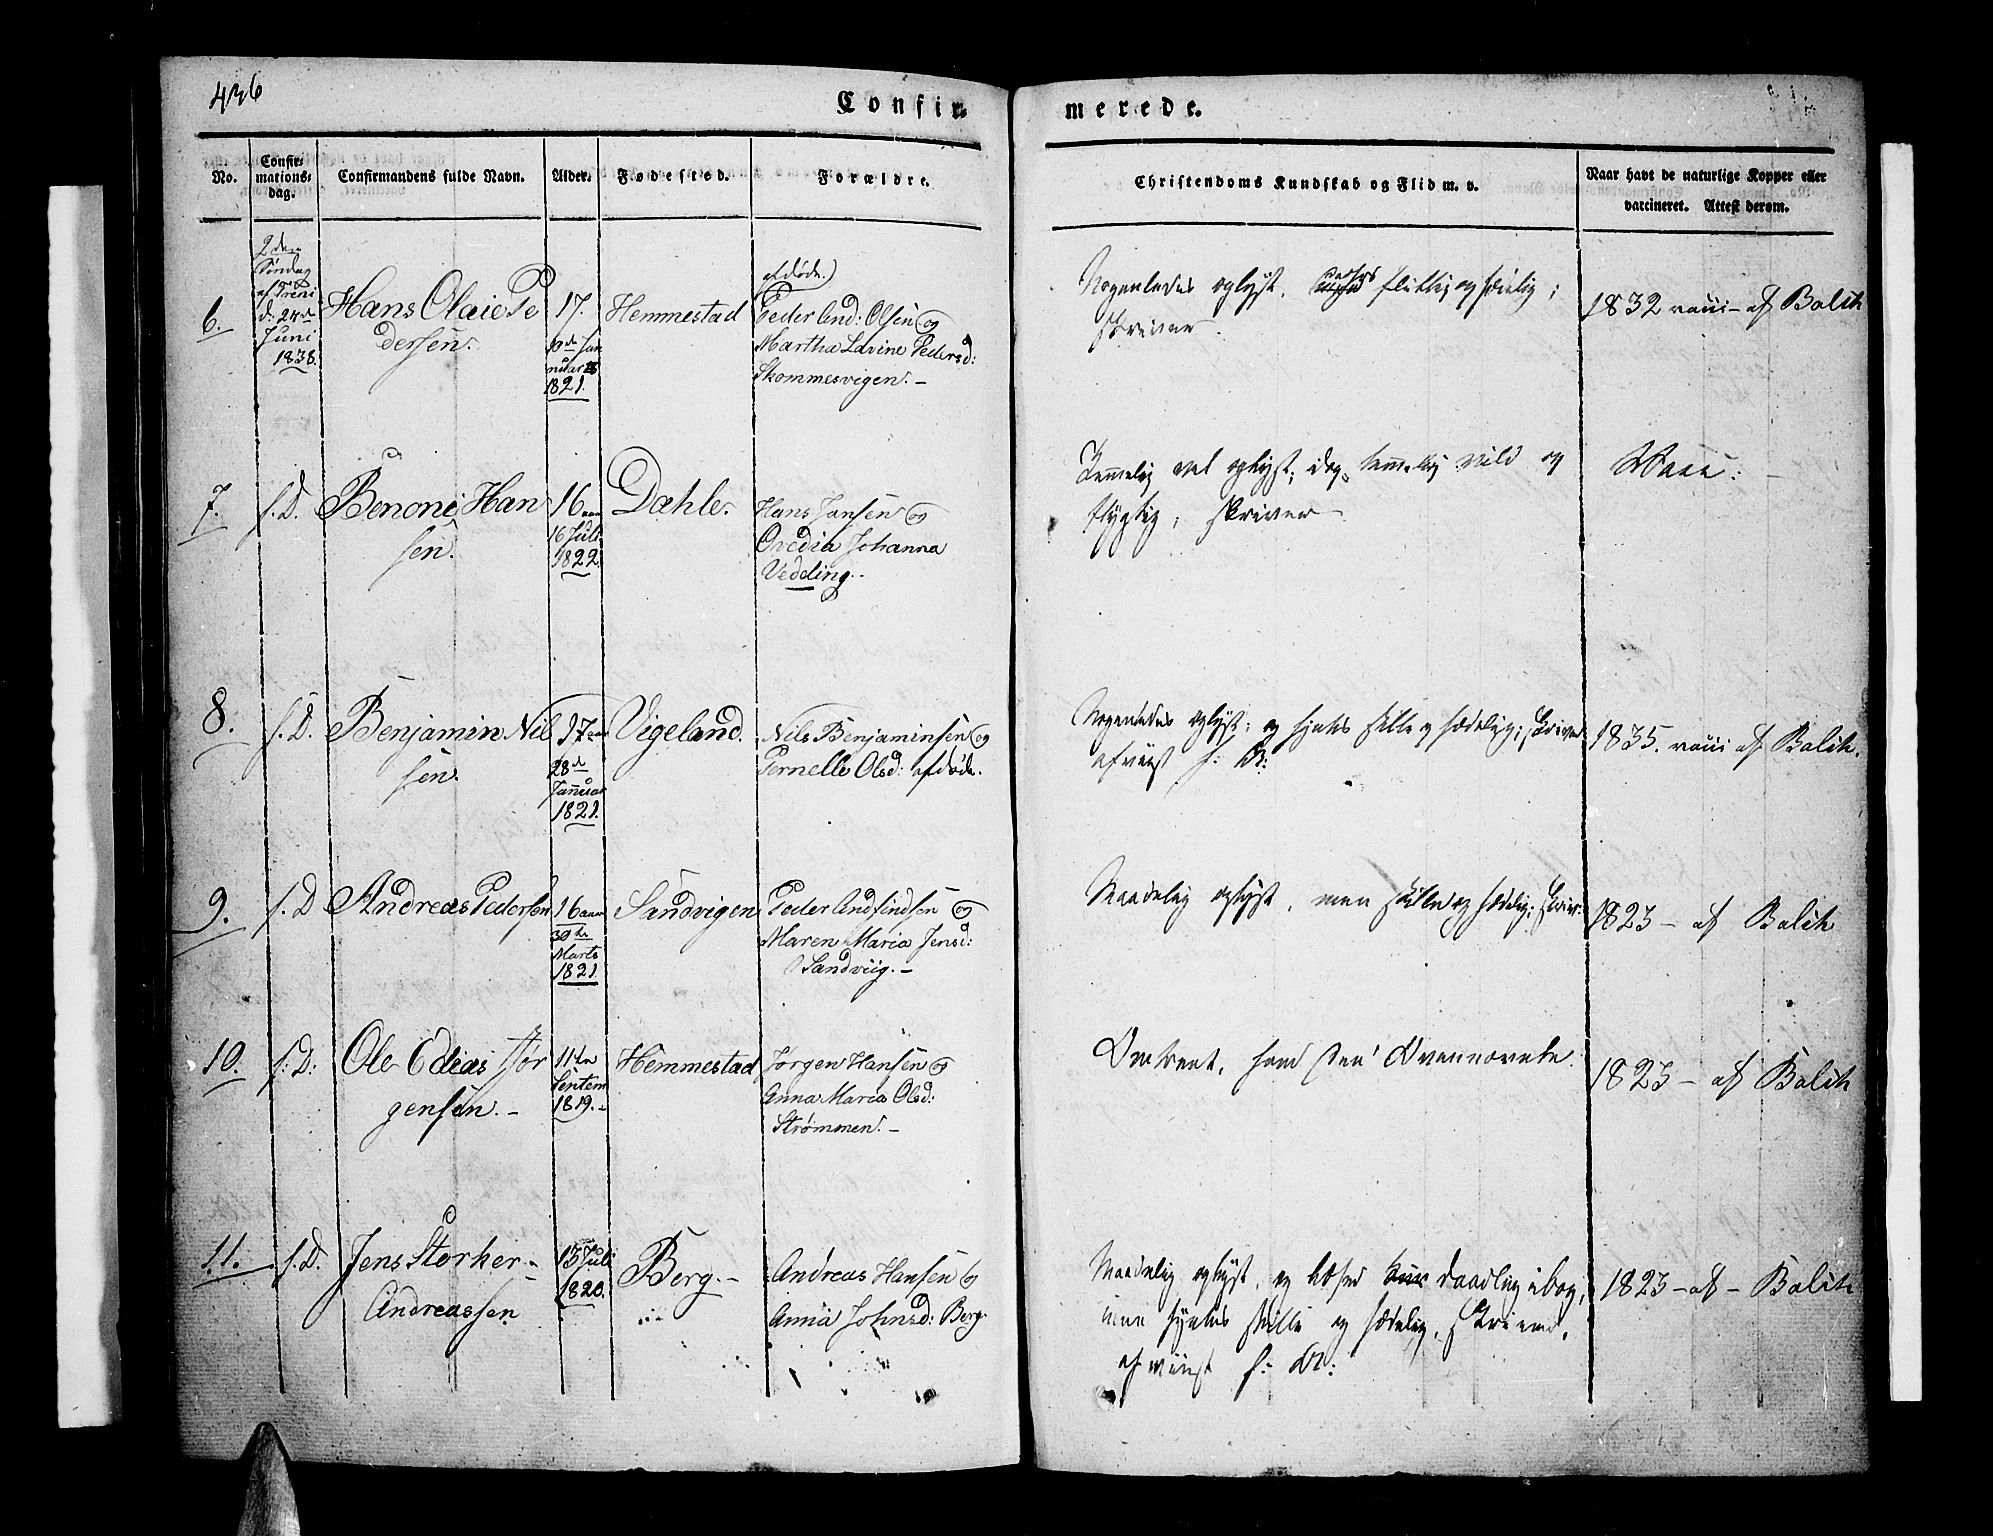 436
Confir-
merede.
No.
Confir-
mations-
dag.
Confirmandens fulde Navn.
Alder.
Fødested.
Forældre.
Christendoms Kundskab og Flid m. v.
Naar havt de naturlige Kopper eller
vaccineret. Attest derom.
6.
2den
Søndag
d: 24de
Juni
1838.
Hans Olaie Pe
dersen.
17.
10de Jan
nuar
1821.
Hemmestad
afdøde.)
Peder And: Olsen og
Martha Lavine Pedersd:
Skommesvigen. -
Nogenledes oplyst, flittig og sædelig;
skriver.
1832 vacci- af Balch
7.
s. D.
Benoni Han
sen.
16 aar
16 Juli
1822.
Dæhle.
Hans Jansen og
Ovedia Johanna
Vedding.
Temmelig vel oplyst; dog temmelig vild og
flygtig; skriver
Vacc: -
8.
s. D.
Benjamin Nil
sen.
17 aar
28de
Januar
1821.
Vigeland.
Nils Benjaminsen og
Pernelle Olsd: afdøde.
Nogenledes oplyst; og synes stille og sædelig; skriver
1835. vacci af Balch.
9.
s. D
Andreas Pedersen
16 aar
30te
Marts
1821.
Sandvigen
Peder Andfindsen og
Maren Maria Jensd:
Sandviig. -
Maadelig oplyst, men stille og sædelig; skriv:
1823 - af Balch
10.
s: D:
Ole Edias Jør
gensen. -
11te
Septem
1819. -
Hemmestad
Jørgen Hansen og
Anna Maria Olsd:
Strømmen. -
Omtrent, som den Ovennævnte.
1823 - af Balch
11.
s. D.
Jens Storker -
Andreassen
13 Juli
1820.
Berg. -
Andreas Hansen og
Anna Johnsd: Berg.
Maadelig oplyst, og læser daadlig i bog,
men synes stille og sædelig,
1823 - af - Balch